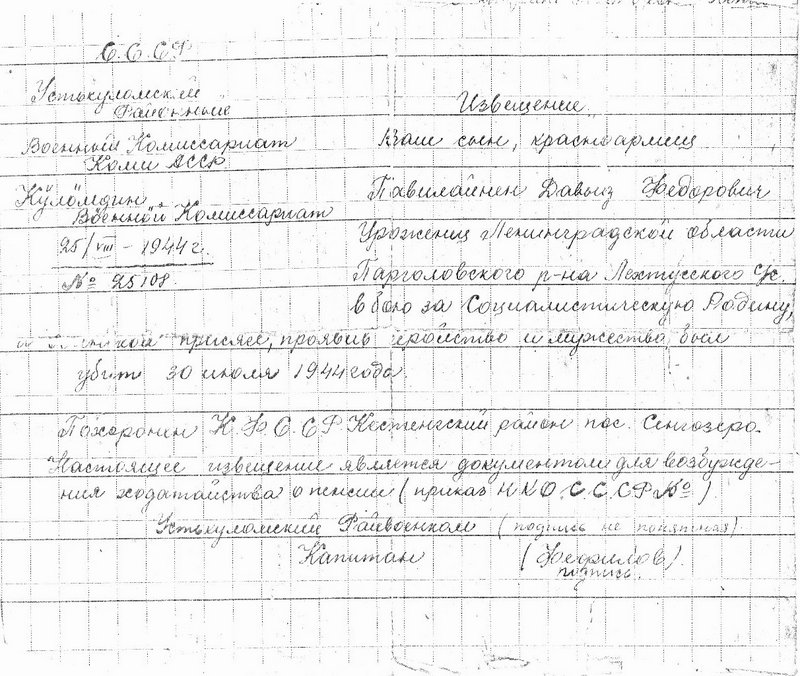 С.С.СР
Устькуломский
Районный
Военный Комиссариат
Коми АССР
Кулöмдин
Военнöй Комиссариат
25/VIII - 1944 г.
№ 25108.
Извещение
Ваш сын, красноармиец
Пахвилайнен Давыд Федорович
Урожениц Ленинградской области
Парголовского р-на Лехтусского с/с.
в бою за Социалистическую Родину,
присяге, проявив геройство и мужества, был
убит 30 июля 1944 года.
Похоронен К.Ф.С.СР Кестенгский район пос. Сенгозеро.
Настоящее извещение является документом для возбужде-
ния ходатайства о пенсии (приказ НКО С.С.СР №)
Устькуломский Райвоенком (подпись не понятная)
Капитан (Фефилов)
подпись.